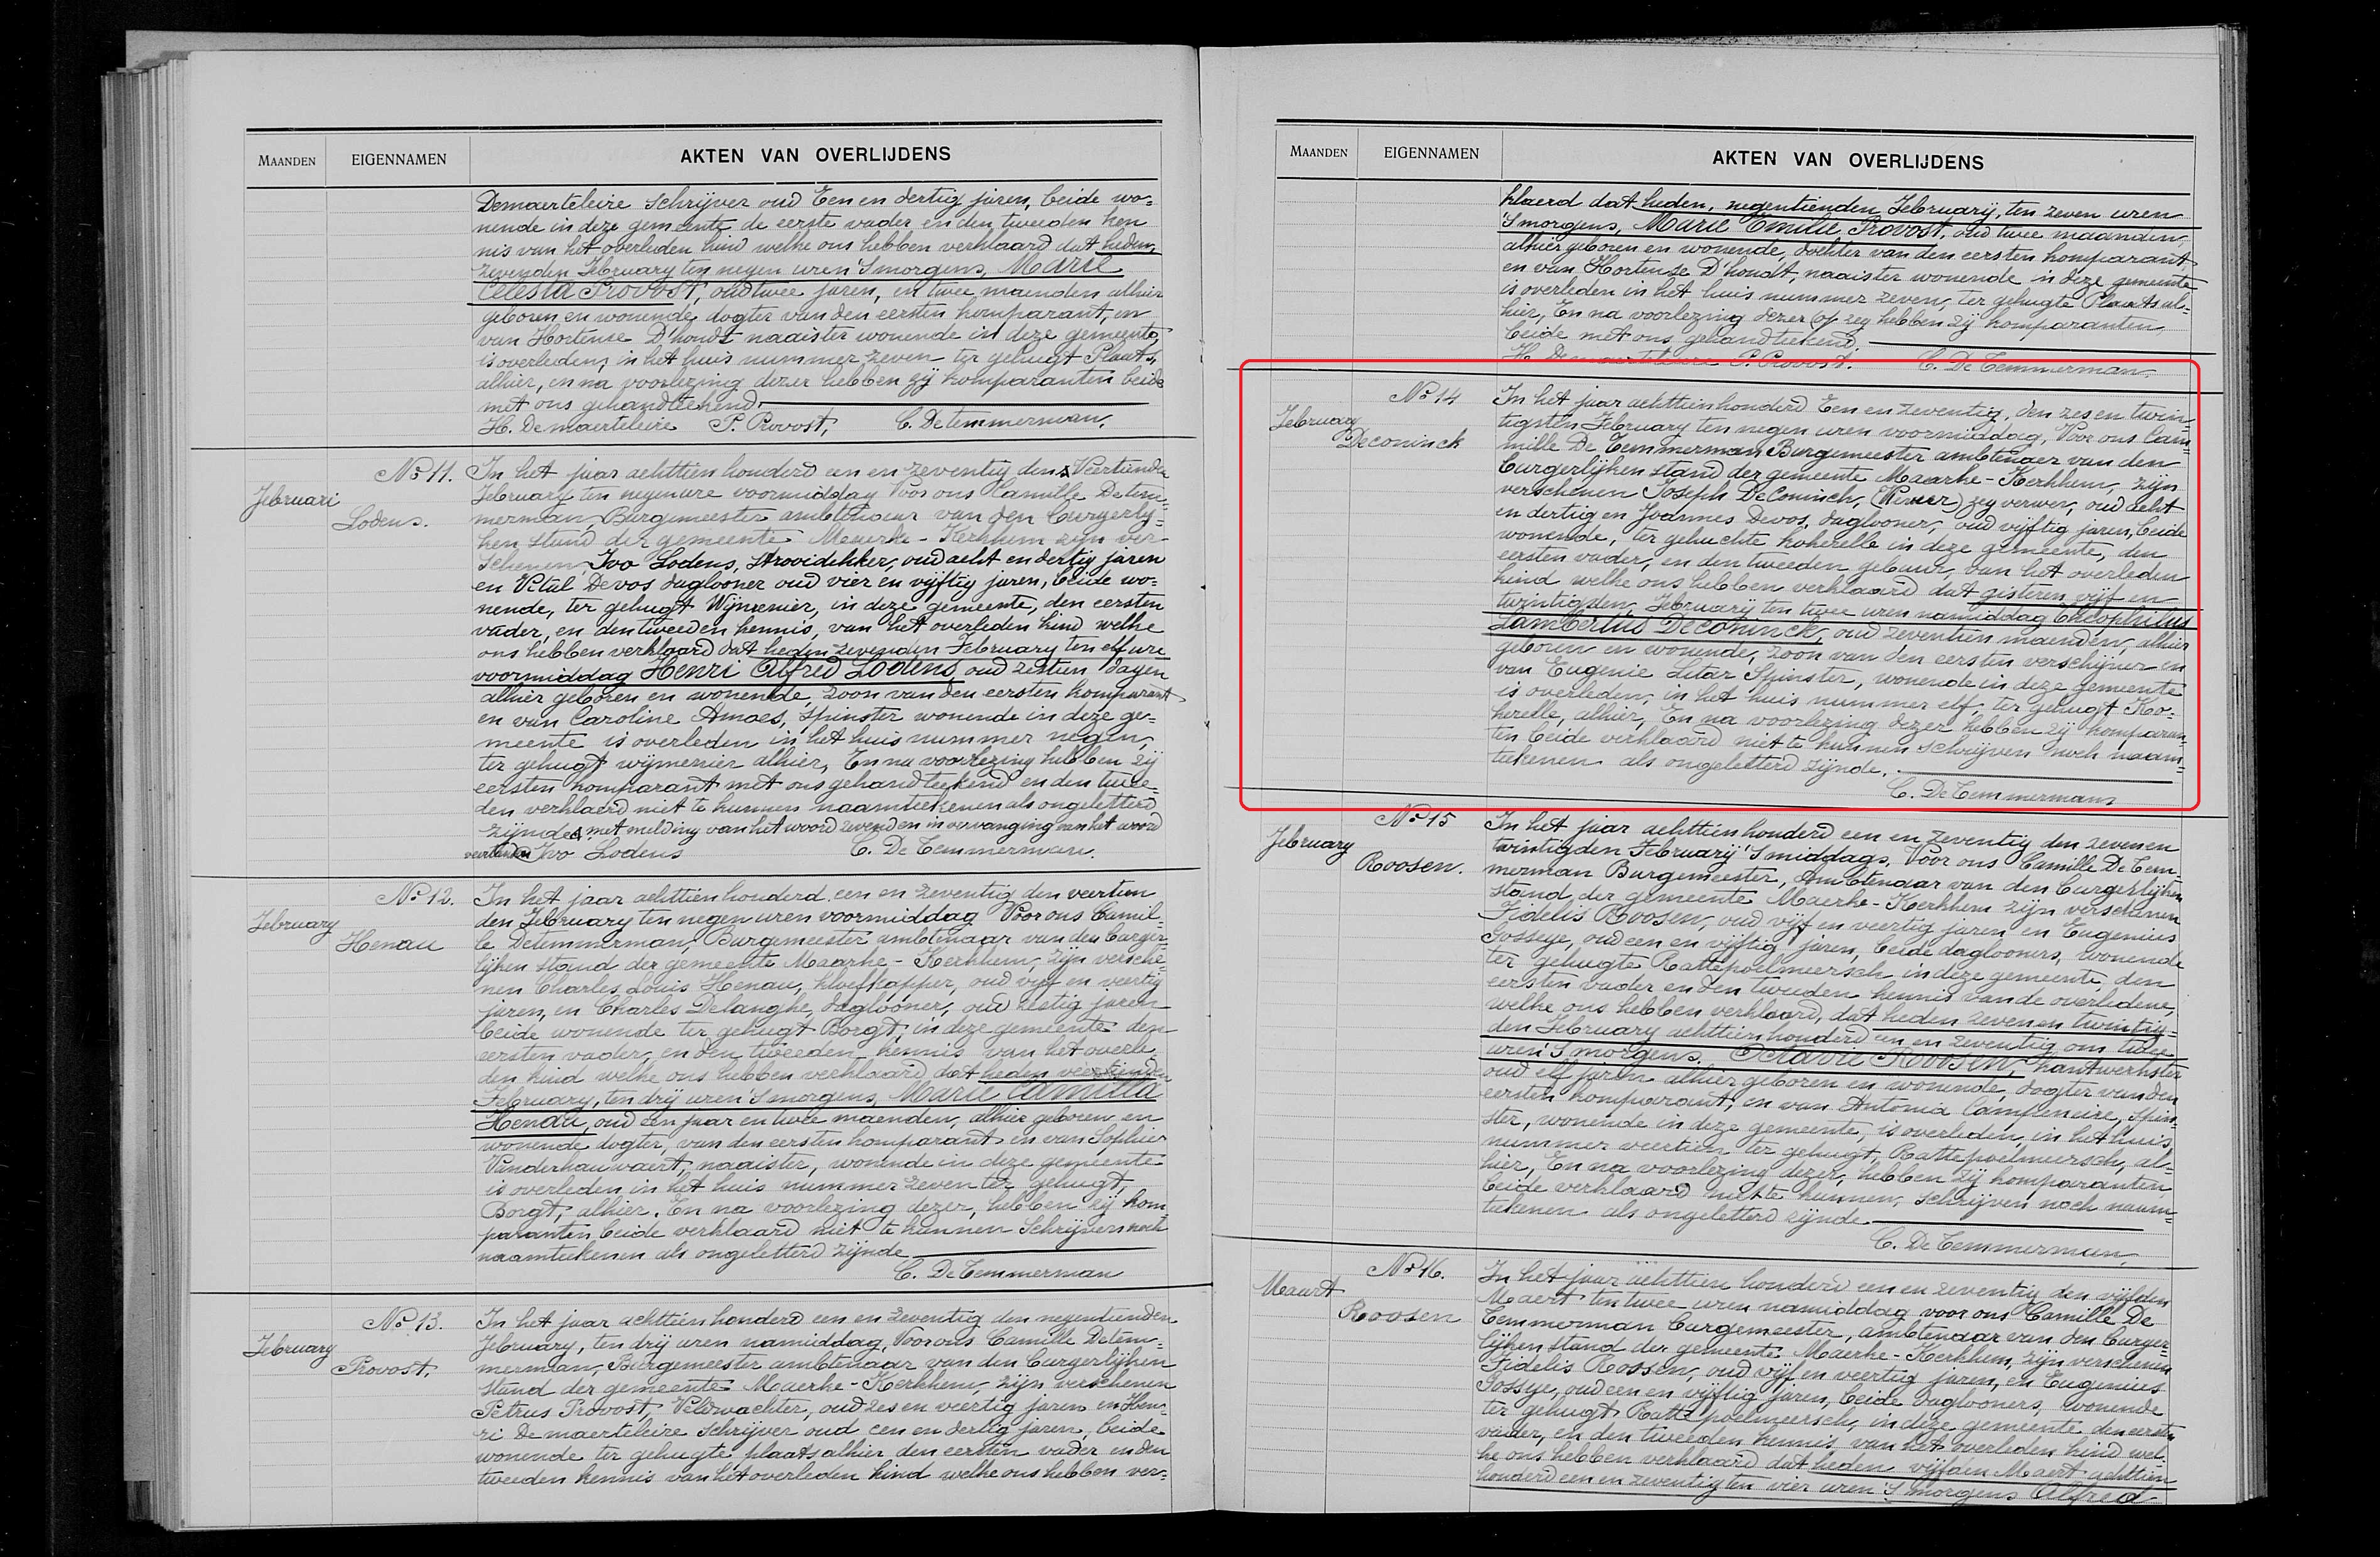 MAANDEN EIGENNAMEN AKTEN VAN OVERLIJDENS
Demaerteleire Schrijver oud Een en dertig jaren, beide wo=
nende in deze gemeente de eerste vader, en den tweeden ken
nis van het overleden kind welke ons hebben verklaard dat heden,
zevenden February ten negen uren 'Smorgens, Marie
Celesta Provost, oud twee jaren, en twee maenden alhier
geboren en wonende dogter van den eersten komparant, en
van Hortense D'hondt naaister wonende in deze gemeente
is overleden, in het huis nummer zeven ter gehugt Plaats,
alhier, en na voorlezing dezer hebben zij komparanten beide
met ons gehandteekend.
H. Demaerteleire P. Provost, C. Detemmerman,
No 11. In het jaar achttien honderd een en zeventig den Veertienden
February ten negen ure voormiddag Voor ons Camille Detem=
Februari
Lodens.
merman, Burgemeester ambtenaar van den Burgerlij=
ken stand der gemeente Maerke-Kerkhem zijn ver-
schenen Ivo Lodens, Strooidekker, oud acht en dertig jaren
en Vital Devos daglooner oud vier en vijftig jaren, beide wo=
nende, ter gehugt Wijmenier, in deze gemeente, den eersten
vader, en den tweeden kennis, van het overleden kind welke
ons hebben verklaard dat heden zevenden February ten elf ure
voormiddag Henri Alfred Lodens, oud zestien dagen
alhier geboren en wonende, zoon van den eersten komparant
en van Caroline Amaes, Spinster wonende in deze ge=
meente is overleden in het huis nummer negen,
ter gehugt wijmenier alhier, En na voorlezing hebben zij
eersten komparant met ons gehandteekend en den twee=
den verklaard niet te kunnen naamteekenen als ongeletterd
zijnde met melding van het woord zevenden in vervanging van het woord
veertienden Ivo Lodens C. De Temmerman.
No 12. In het jaar achttien honderd een en zeventig den veertien
February
Henau
den February ten negen uren voormiddag Voor ons Camil=
le Detemmerman, Burgemeester ambtenaar van den Burger=
lijken stand der gemeente Maarke-Kerkhem, zijn versche=
nen Charles Louis Henau, kloefkapper, oud vijf en veertig
jaren, en Charles Delanghe, daglooner, oud zestig jaren
beide wonende ter gehugt Borgt, in deze gemeente den
eersten vader, en den tweeden kennis van het overle
den kind welke ons hebben verklaard dat heden veertienden
February, ten drij uren 'Smorgens, Marie Camilla
Henau, oud een jaar en twee maenden, alhier geboren en
wonende dogter, van den eersten komparant en van Sophie
Vanderhauwaert, naaister, wonende in deze gemeente
is overleden in het huis nummer zeven ter gehugt
Borgt, alhier. En na voorlezing dezer, hebben zij kom=
paranten beide verklaard niet te kunnen Schrijven noch
naamteekenen als ongeletterd zijnde
C. De Temmerman
No 13. In het jaar achttien honderd een en zeventig den negentienden
February
Provost.
February, ten drij uren namiddag, Voor ons Camille Detem=
merman, Burgemeester ambtenaar van den burgerlijken
stand der gemeente Maerke-Kerkhem, zijn verschenen
Petrus Provost, Veldwachter, oud zes en veertig jaren en Hen=
ri Demaerteleire Schrijver oud een en dertig jaren, beide
wonende ter gehugte plaats alhier den eersten vader en den
tweeden kennis van het overleden kind welke ons hebben ver=
MAANDEN EIGENNAMEN AKTEN VAN OVERLIJDENS
klaerd dat heden, negentienden February, ten zeven uren
'Smorgens, Marie Emilie Provost, oud twee maanden,
alhier geboren en wonende, dochter van den eersten komparant
en van Hortense D'hondt, naaister wonende in deze gemeente
is overleden in het huis nummer zeven, ter gehugte Plaats al=
hier, En na voorlezing dezer (of zeg hebben zij komparanten
beide met ons gehandteekend.
H. Demaerteleire P. Provost. C. De Temmerman,
No 14 In het jaar achttienhonderd Een en zeventig, den zes en twin=
February
Deconinck
tigsten February ten negen uren voormiddag, Voor ons Cam=
mille De Temmerman Burgemeester ambtenaer van den
burgerlijken stand der gemeente Maarke-Kerkhem, zijn
verschenen Joseph DeConinck, (Wever) zeg verwer, oud acht
en dertig en Joannes Devos, daglooner, oud vijftig jaren, beide
wonende, ter gehuchte kokerelle in deze gemeente, den
eersten vader, en den tweeden gebuur, van het overleden
kind welke ons hebben verklaard dat gisteren vijf en
twintigsden, February ten twee uren namiddag Theophilus
Lambertus Deconinck, oud zeventien maenden, alhier
geboren en wonende, zoon van den eersten verschijner en
van Eugenie Letar Spinster, wonende in deze gemeente
is overleden, in het huis nummer elf ter gehugt Ko=
kerelle, alhier, En na voorlezing dezer hebben zij komparan=
ten beide verklaard niet te kunnen schrijven noch naam=
teekenen als ongeletterd zijnde.
C. De Temmerman
No 15 In het jaar achttienhonderd een en zeventig den zeven en
February
Roosen.
twintigden February 'Smiddags, Voor ons Camille De Tem
merman Burgemeester, Ambtenaar van den burgerlijken
stand der gemeente Maerke-Kerkhem zijn verschenen
Fidelis Roosen, oud vijf en veertig jaren en Eugenius
Gosseye, oud een en vijftig jaren, beide daglooners, wonende
ter gehugte Rattepoelmeersch, in deze gemeente, den
eersten vader en den tweeden kennis van de overledene,
welke ons hebben verklaard, dat heden zeven en twintig=
den February achttienhonderd een en zeventig om twee
uren 'Smorgens. Octavie Roosen, handwerkster
oud elf jaren alhier geboren en wonende, dogter van den
eersten komparant, en van Antonia Campleneire, Spin=
ster, wonende in deze gemeente, is overleden, in het huis
nummer veertien ter gehugt, Rattepoelmeersch, al=
hier, En na voorlezing dezer, hebben zij komparanten
beide verklaard niet te kunnen, schrijven noch naam=
teekenen als ongeletterd zijnde
C. De Temmerman,
No 16. In het jaar achttien honderd een en zeventig den vijfden
Maart
Roosen
Maert ten twee uren namiddag voor ons Camille De
Temmerman burgemeester, ambtenaar van den burger=
lijken stand der gemeente Maerke-Kerkhem, zijn verschenen
Fidelis Rossen, oud vijf en veertig jaren, en Eugenius
Gossye, oud een en vijftig jaren, beide daglooners, wonende
ter gehugt Rattepoelmeersch, in deze gemeente den eersten
vader, en den tweeden kennis van het overleden kind wel
ke ons hebben verklaard dat heden vijfden Maert achttien
honderd een en zeventig ten vier uren 'Smorgens Alfred